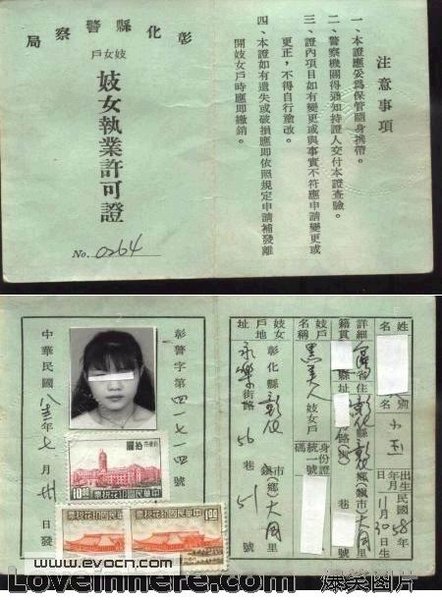 彰化縣警察局
妓女戶
妓女執業許可證
No. 0264
注意事項
一、本證應妥為保管隨身携帶。
二、警察機關得通知持證人交付本證查驗。
三、證內項目如有變更或與事實不符應申請變更或
更正，不得自行塗改。
四、本證如有遺失或破損應即依照規定申請補發離
開妓女戶時應即繳銷。
姓名
別名 小玉
出生年月日 民國58年11月30日生
籍貫
詳細住址 彰化縣彰化鄉(鎮市)大同里
路 巷 號
妓女戶名稱 黑美人 妓女戶
身份證統一號碼
妓女戶地址 彰化縣彰化鎮(鄉)市大同里
永樂街路56巷51號
彰警字第四一七一四號
中華民國八三年七月卅日發
中華民國印花稅票
拾圓
10.00
中華民國印花稅票
1.00
www.evocn.com
Loveinhere.com
爆笑图片